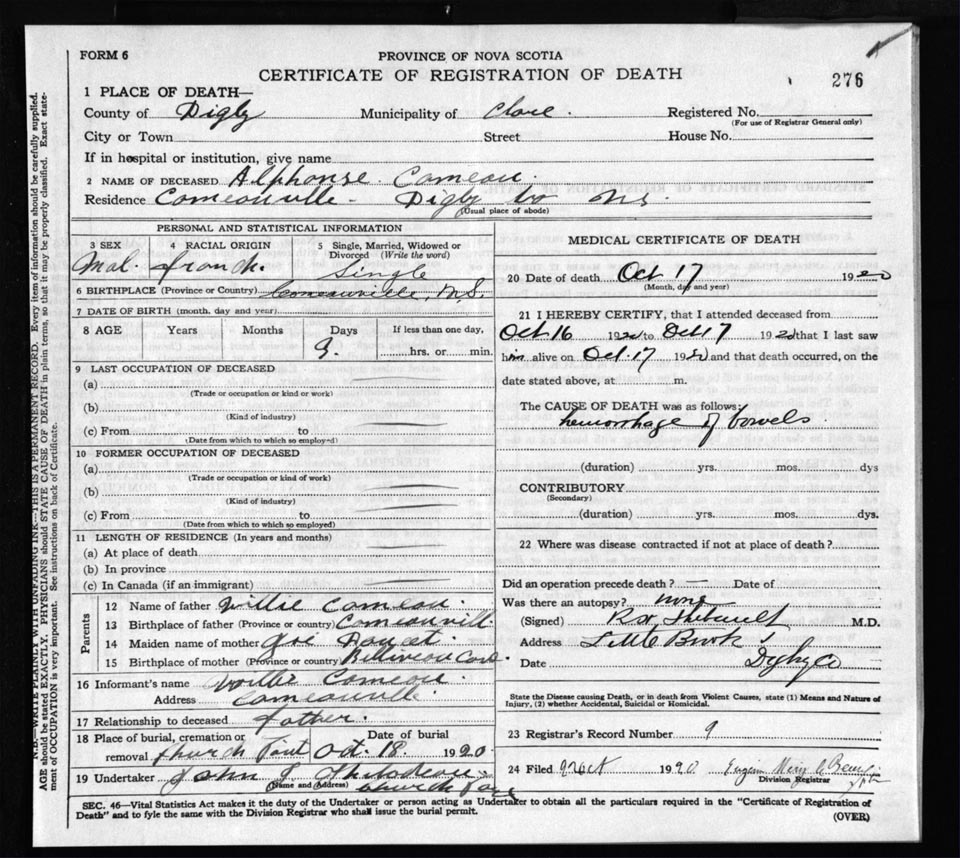 FORM 6
PROVINCE OF NOVA SCOTIA
CERTIFICATE OF REGISTRATION OF DEATH
276
1 PLACE OF DEATH—
County of Digby Municipality of Clare. Registered No.
(For use of Registrar General only)
City or Town Street House No.
If in hospital or institution, give name
2 NAME OF DECEASED Alphonse Comeau.
Residence Comeauville - Digby Co N.S.
(Usual place of abode)
PERSONAL AND STATISTICAL INFORMATION
3 SEX 4 RACIAL ORIGIN 5 Single, Married, Widowed or Divorced (Write the word)
Mal. french. Single
6 BIRTHPLACE (Province or Country) Comeauville, N.S.
7 DATE OF BIRTH (month, day and year)
8 AGE Years Months Days If less than one day,
9. hrs. or min.
9 LAST OCCUPATION OF DECEASED
(a)
(Trade or occupation or kind or work)
(b)
(Kind of industry)
(c) From to
(Date from which to which so employed)
10 FORMER OCCUPATION OF DECEASED
(a)
(Trade or occupation or kind of work)
(b)
(Kind of industry)
(c) From to
(Date from which to which so employed)
11 LENGTH OF RESIDENCE (In years and months)
(a) At place of death
(b) In province
(c) In Canada (if an immigrant)
Parents
12 Name of father Willie Comeau.
13 Birthplace of father (Province or country) Comeauvill.
14 Maiden name of mother Doucet.
15 Birthplace of mother (Province or country) Cove.
16 Informant's name Willie Comeau.
Address Comeauville.
17 Relationship to deceased father.
18 Place of burial, cremation or removal Church Point Date of burial Oct. 18. 1920
19 Undertaker John Thibodeau
(Name and Address) Church Point
MEDICAL CERTIFICATE OF DEATH
20 Date of death Oct 17 1920
(Month, day and year)
21 I HEREBY CERTIFY, that I attended deceased from
Oct 16 1920 to Oct 17 1920 that I last saw
him alive on Oct. 17 1920 and that death occurred, on the
date stated above, at m.
The CAUSE OF DEATH was as follows:
hemorrhage of bowels.
(duration) yrs. mos. dys
CONTRIBUTORY
(Secondary)
(duration) yrs. mos. dys.
22 Where was disease contracted if not at place of death?
Did an operation precede death? — Date of
Was there an autopsy? none
(Signed) M.D.
Address Little Brook
Date Digby Co
State the Disease causing Death, or in death from Violent Causes, state (1) Means and Nature of
Injury, (2) whether Accidental, Suicidal or Homicidal.
23 Registrar's Record Number 9
24 Filed Oct 1920
Division Registrar
SEC. 46—Vital Statistics Act makes it the duty of the Undertaker or person acting as Undertaker to obtain all the particulars required in the "Certificate of Registration of
Death" and to fyle the same with the Division Registrar who shall issue the burial permit.
(OVER)
N.B.—WRITE PLAINLY WITH UNFADING INK—THIS IS A PERMANENT RECORD. Every item of information should be carefully supplied.
AGE should be stated EXACTLY. PHYSICIANS should STATE CAUSE OF DEATH in plain terms, so that it may be properly classified. Exact state-
ment of OCCUPATION is very important. See instructions on back of Certificate.